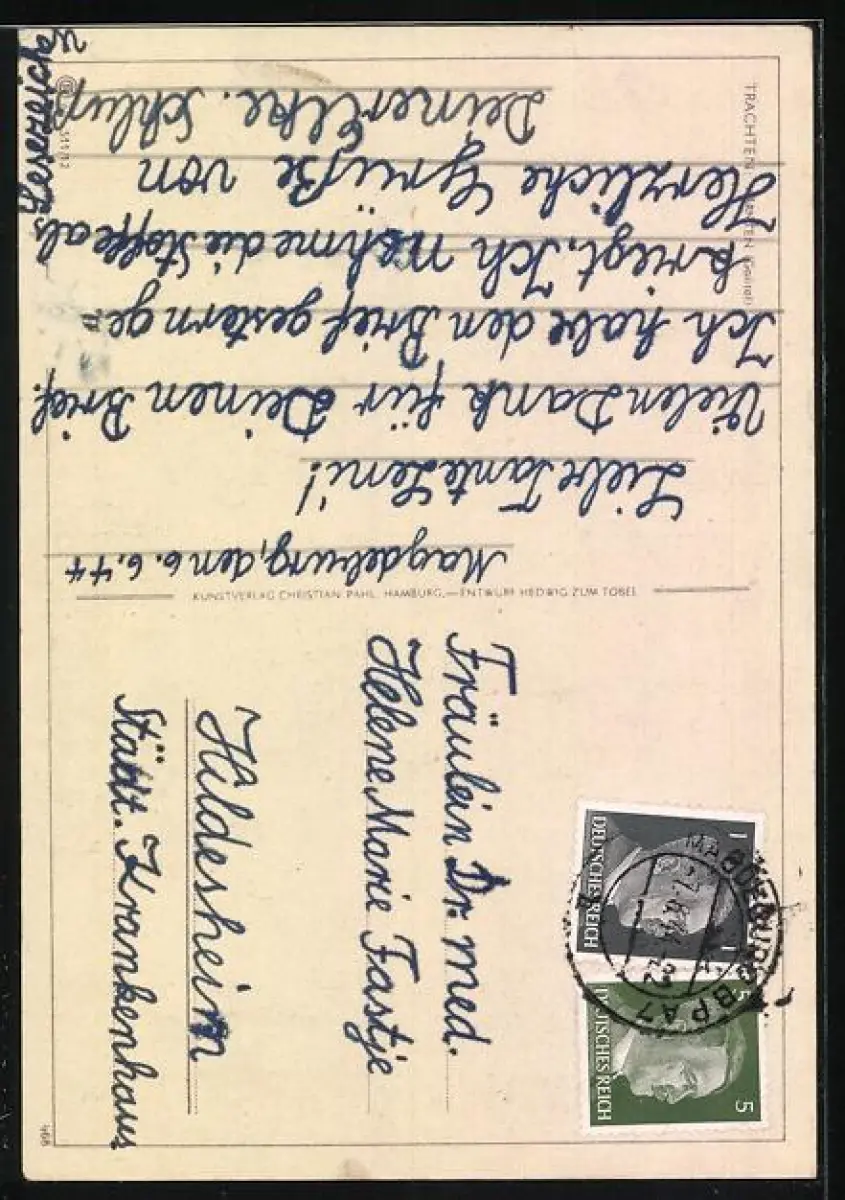 Magdeburg, den 6.6.44
Liebe Tante Leni!
Vielen Dank für Deinen Brief.
Ich habe den Brief gestern ge„
kriegt. Ich nehme die Stoffe als
Lesezeich
Herzliche Grüße von
Deiner Elke. Schluß
TRACHTEN KÄRNTEN (Gailtal)
KUNSTVERLAG CHRISTIAN PAHL, HAMBURG,—ENTWURF HEDWIG ZUM TOBEL
Fräulein Dr. med.
Helene Marie Fastje
Hildesheim
Städt. Krankenhaus
DEUTSCHES REICH
1
1
DEUTSCHES REICH
5
5
MAGDEBURG BPA 7
7.6.44-22
k
466